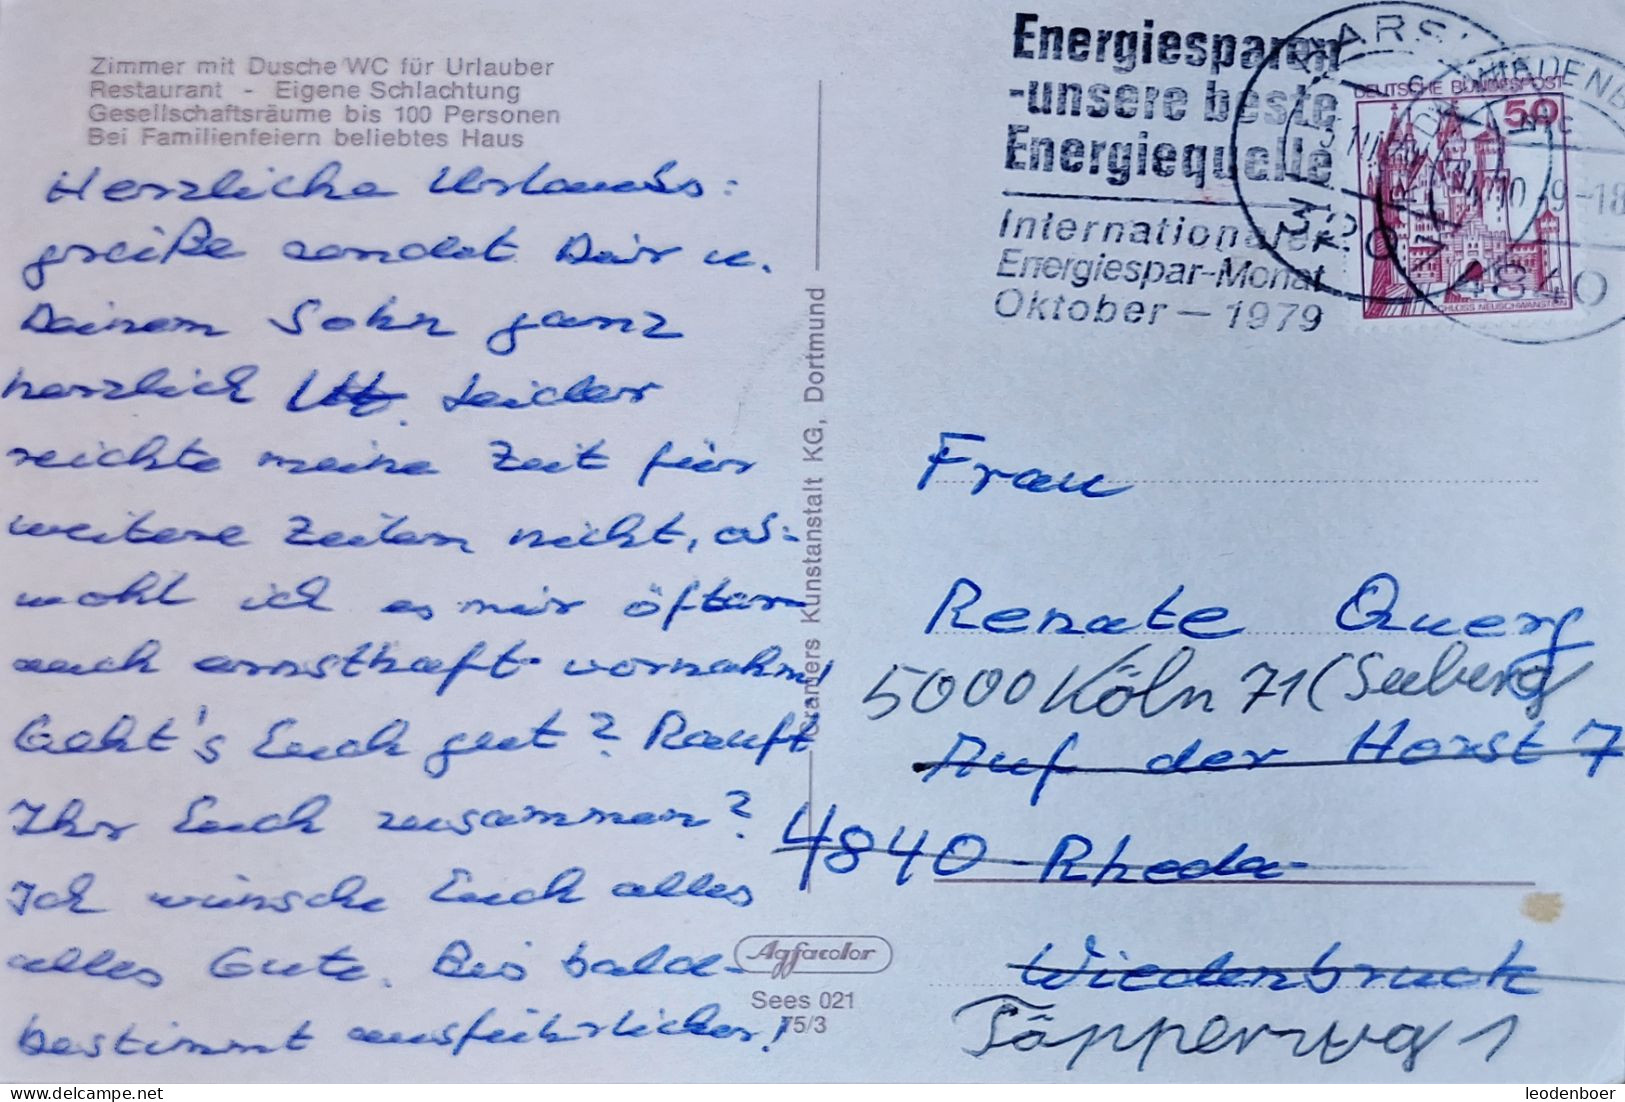 Zimmer mit Dusche/WC für Urlauber
Restaurant - Eigene Schlachtung
Gesellschaftsräume bis 100 Personen
Bei Familienfeiern beliebtes Haus
Herzliche Urlaubs=
grüße sendet Dir u.
Deinem Sohn ganz
herzlich Utz. Leider
reichte meine Zeit für
weitere Zeilen nicht, ob=
wohl ich es mir öfter
auch ernsthaft vornahm!
Geht's Euch gut? Rauft
Ihr Euch zusammen?
Ich wünsche Euch alles
alles Gute. Bis bald -
bestimmt ausführlicher!
Cramers Kunstanstalt KG, Dortmund
Agfacolor
Sees 021
75/3
Energiesparen
-unsere beste
Energiequelle
Internationaler
Energiespar-Monat
Oktober - 1979
DEUTSCHE BUNDESPOST
50
SCHLOSS NEUSCHWANSTEIN
4840
Frau
Renate Querg
5000 Köln 71 (Seeberg
Auf der Horst 7
4840 Rheda-
Wiedenbruck
Täpperweg 1
leodenboer